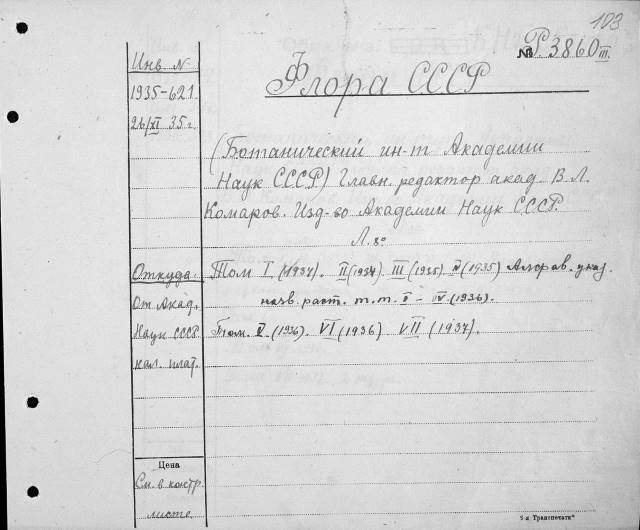 103
№ Р. 3860 III.
Флора СССР
Инв. N
1935-621
26/XI 35 г.
(Ботанический ин-т Академии
Наук СССР) Главн. редактор акад. В. Л.
Комаров. Изд-во Академии Наук СССР.
Л. 8°
Откуда
От Акад.
Наук СССР
нал. плат.
Том I. (1934). II (1934) III (1935). IV (1935) Алфав. указ.
назв. раст. т.т. I – IV (1936).
Том. V. (1936). VI (1936) VII (1937).
Цена
См. в контр.
листе
5-я Транспечати"